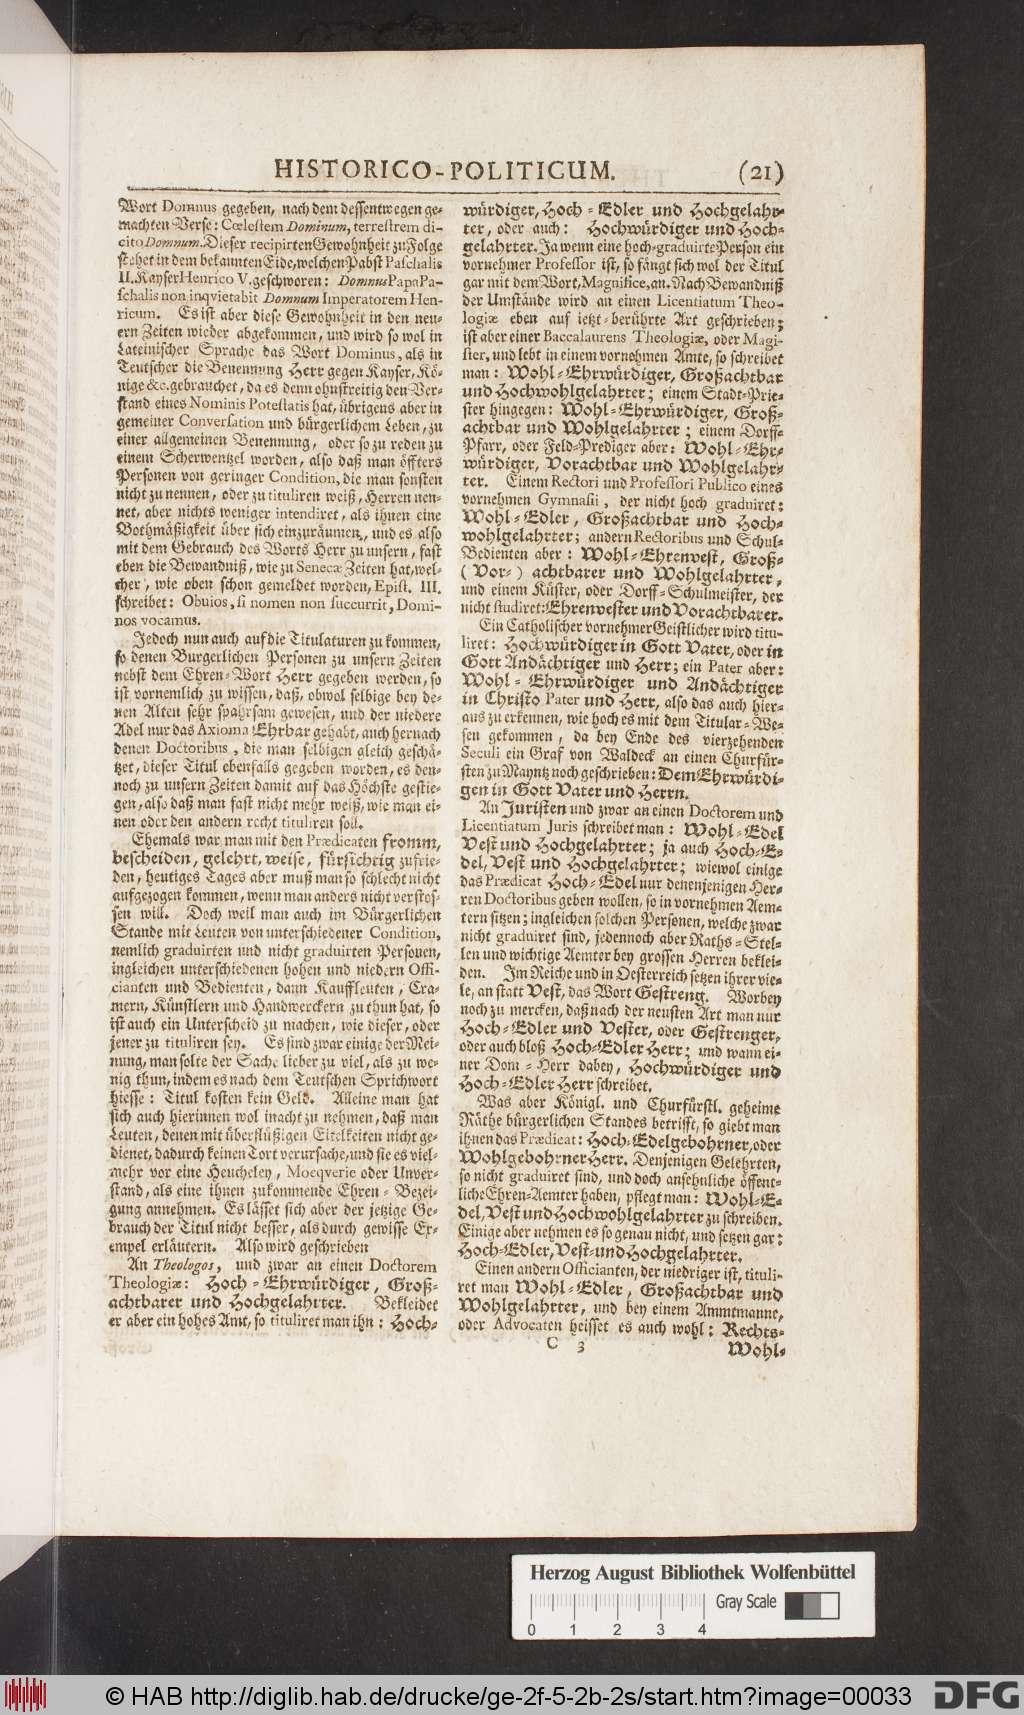 HISTORICO-POLITICUM. (21)
Wort Domnus gegeben, nach dem dessentwegen ge-
machten Verse: Cœlestem Dominum, terrestrem di-
cito Domnum. Dieser recipirten Gewohnheit zu Folge
stehet in dem bekannten Eide, welchen Pabst Paschalis
II. Kayser Henrico V. geschworen: Domnus Papa Pa-
schalis non inqvietabit Domnum Imperatorem Hen-
ricum. Es ist aber diese Gewohnheit in den neu-
ern Zeiten wieder abgekommen, und wird so wol in
Lateinischer Sprache das Wort Dominus, als in
Teutscher die Benennung Herr gegen Kayser, Kö-
nige &c. gebrauchet, da es denn ohnstreitig den Ver-
stand eines Nominis Potestatis hat, übrigens aber in
gemeiner Conversation und bürgerlichem Leben, zu
einer allgemeinen Benennung, oder so zu reden zu
einem Scherwentzel worden, also daß man öffters
Personen von geringer Condition, die man sonsten
nicht zu nennen, oder zu tituliren weiß, Herren nen-
net, aber nichts weniger intendiret, als ihnen eine
Bothmäßigkeit über sich einzuräumen, und es also
mit dem Gebrauch des Worts Herr zu unsern, fast
eben die Bewandniß, wie zu Senecæ Zeiten hat, wel-
cher, wie oben schon gemeldet worden, Epist. III.
schreibet: Obuios, si nomen non succurrit, Domi-
nos vocamus.
Jedoch nun auch auf die Titulaturen zu kommen,
so denen Burgerlichen Personen zu unsern Zeiten
nebst dem Ehren-Wort Herr gegeben werden, so
ist vornemlich zu wissen, daß, obwol selbige bey de-
nen Alten sehr spahrsam gewesen, und der niedere
Adel nur das Axioma Ehrbar gehabt, auch hernach
denen Doctoribus, die man selbigen gleich geschä-
tzet, dieser Titul ebenfalls gegeben worden, es den-
noch zu unsern Zeiten damit auf das Höchste gestie-
gen, also daß man fast nicht mehr weiß, wie man ei-
nen oder den andern recht tituliren soll.
Ehemals war man mit den Prædicaten fromm,
bescheiden, gelehrt, weise, fürsichtig zufrie-
den, heutiges Tages aber muß man so schlecht nicht
aufgezogen kommen, wenn man anders nicht verstos-
sen will. Doch weil man auch im Bürgerlichen
Stande mit Leuten von unterschiedener Condition,
nemlich graduirten und nicht graduirten Personen,
ingleichen unterschiedenen hohen und niedern Offi-
cianten und Bedienten, dann Kauffleuten, Cra-
mern, Künstlern und Handwerckern zu thun hat, so
ist auch ein Unterscheid zu machen, wie dieser, oder
jener zu tituliren sey. Es sind zwar einige der Mei-
nung, man solte der Sache lieber zu viel, als zu we-
nig thun, indem es nach dem Teutschen Sprichwort
hiesse: Titul kosten kein Geld. Alleine man hat
sich auch hierinnen wol inacht zu nehmen, daß man
Leuten, denen mit überflüßigen Eitelkeiten nicht ge-
dienet, dadurch keinen Tort verursache, und sie es viel-
mehr vor eine Heucheley, Mocqverie oder Unver-
stand, als eine ihnen zukommende Ehren-Bezei-
gung annehmen. Es lässet sich aber der jetzige Ge-
brauch der Titul nicht besser, als durch gewisse Ex-
empel erläutern. Also wird geschrieben
An Theologos, und zwar an einen Doctorem
Theologiæ: Hoch-Ehrwürdiger, Groß-
achtbarer und Hochgelahrter. Bekleidet
er aber ein hohes Amt, so tituliret man ihn: Hoch-
würdiger, Hoch-Edler und Hochgelahr-
ter, oder auch: Hochwürdiger und Hoch-
gelahrter. Ja wenn eine hoch-graduirte Person ein
vornehmer Professor ist, so fängt sich wol der Titul
gar mit dem Wort, Magnifice, an. Nach Bewandniß
der Umstände wird an einen Licentiatum Theo-
logiæ eben auf jetzt-berührte Art geschrieben;
ist aber einer Baccalaurens Theologiæ, oder Magi-
ster, und lebt in einem vornehmen Amte, so schreibet
man: Wohl-Ehrwürdiger, Großachtbar
und Hochwohlgelahrter; einem Stadt-Prie-
ster hingegen: Wohl-Ehrwürdiger, Groß-
achtbar und Wohlgelahrter; einem Dorff-
Pfarr, oder Feld-Prediger aber: Wohl-Ehr-
würdiger, Vorachtbar und Wohlgelahr-
ter. Einem Rectori und Professori Publico eines
vornehmen Gymnasii, der nicht hoch graduiret:
Wohl-Edler, Großachtbar und Hoch-
wohlgelahrter; andern Rectoribus und Schul-
Bedienten aber: Wohl-Ehrenvest, Groß-
(Vor-) achtbarer und Wohlgelahrter,
und einem Küster, oder Dorff-Schulmeister, der
nicht studiret: Ehrenvester und Vorachtbarer.
Ein Catholischer vornehmer Geistlicher wird titu-
liret: Hochwürdiger in Gott Vater, oder in
Gott Andächtiger und Herr; ein Pater aber:
Wohl-Ehrwürdiger und Andächtiger
in Christo Pater und Herr, also das auch hier-
aus zu erkennen, wie hoch es mit dem Titular-We-
sen gekommen, da bey Ende des vierzehenden
Seculi ein Graf von Waldeck an einen Churfür-
sten zu Mayntz noch geschrieben: Dem Ehrwürdi-
gen in Gott Vater und Herrn.
An Juristen und zwar an einen Doctorem und
Licentiatum Juris schreibet man: Wohl-Edel
Vest und Hochgelahrter; ja auch Hoch-E-
del, Vest und Hochgelahrter; wiewol einige
das Prædicat Hoch-Edel nur denenjenigen Her-
ren Doctoribus geben wollen, so in vornehmen Aem-
tern sitzen; ingleichen solchen Personen, welche zwar
nicht graduiret sind, jedennoch aber Raths-Stel-
len und wichtige Aemter bey grossen Herren beklei-
den. Im Reiche und in Oesterreich setzen ihrer vie-
le, an statt Vest, das Wort Gestreng. Worbey
noch zu mercken, daß nach der neusten Art man nur
Hoch-Edler und Vester, oder Gestrenger,
oder auch bloß Hoch-Edler Herr; und wann ei-
ner Dom-Herr dabey, Hochwürdiger und
Hoch-Edler Herr schreibet.
Was aber Königl. und Churfürstl. geheime
Räthe bürgerlichen Standes betrifft, so giebt man
ihnen das Prædicat: Hoch-Edelgebohrner, oder
Wohlgebohrner Herr. Denjenigen Gelehrten,
so nicht graduiret sind, und doch ansehnliche öffent-
liche Ehren-Aemter haben, pflegt man: Wohl-E-
del, Vest und Hochwohlgelahrter zu schreiben.
Einige aber nehmen es so genau nicht, und setzen gar:
Hoch-Edler, Vest-und Hochgelahrter.
Einen andern Officianten, der niedriger ist, tituli-
ret man Wohl-Edler, Großachtbar und
Wohlgelahrter, und bey einem Ammtmanne,
oder Advocaten heisset es auch wohl: Rechts-
C 3 Wohl-
Herzog August Bibliothek Wolfenbüttel
Gray Scale
0 1 2 3 4
© HAB http://diglib.hab.de/drucke/ge-2f-5-2b-2s/start.htm?image=00033 DFG